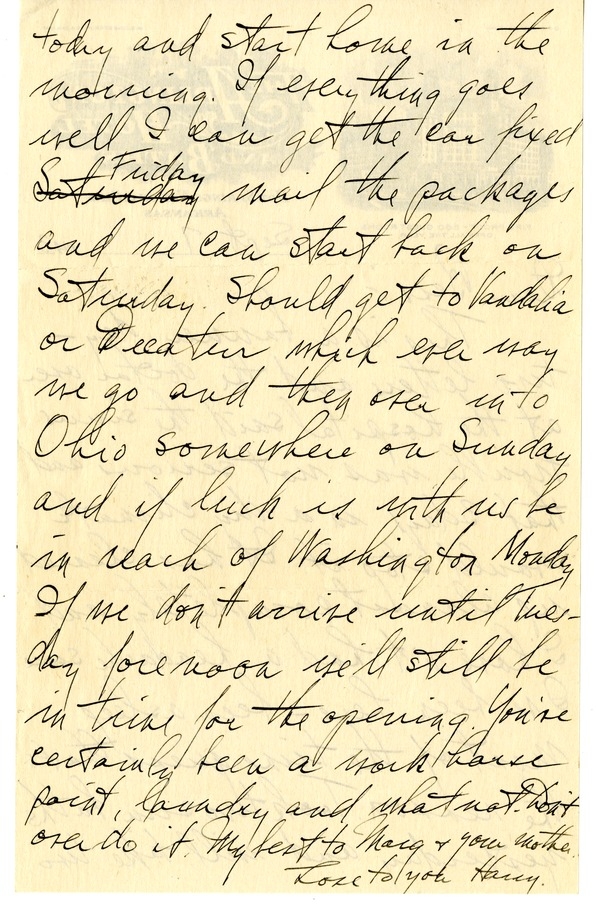 today and start home in the
morning. If everything goes
well I can get the car fixed
Friday
Saturday mail the packages
and we can start back on
Saturday. Should get to Vandalia
or Decatur which ever way
we go and then over into
Ohio somewhere on Sunday
and if luck is with us be
in reach of Washington Monday
If we don't arrive until Tues-
day forenoon we'll still be
in time for the opening. You've
certainly been a work horse
paint, laundry and what not. Don't
overdo it. My best to Marg & your mother.
Love to you Harry.